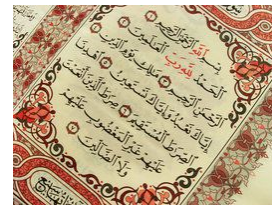 بسم الله الرحمن الرحيم
الحمد لله رب العلمين
الرحمن الرحيم ملك يوم الدين
إياك نعبد وإياك نستعين اهدنا
الصرط المستقيم صرط الذين أنعمت
عليهم غير المغضوب عليهم
ولا الضالين